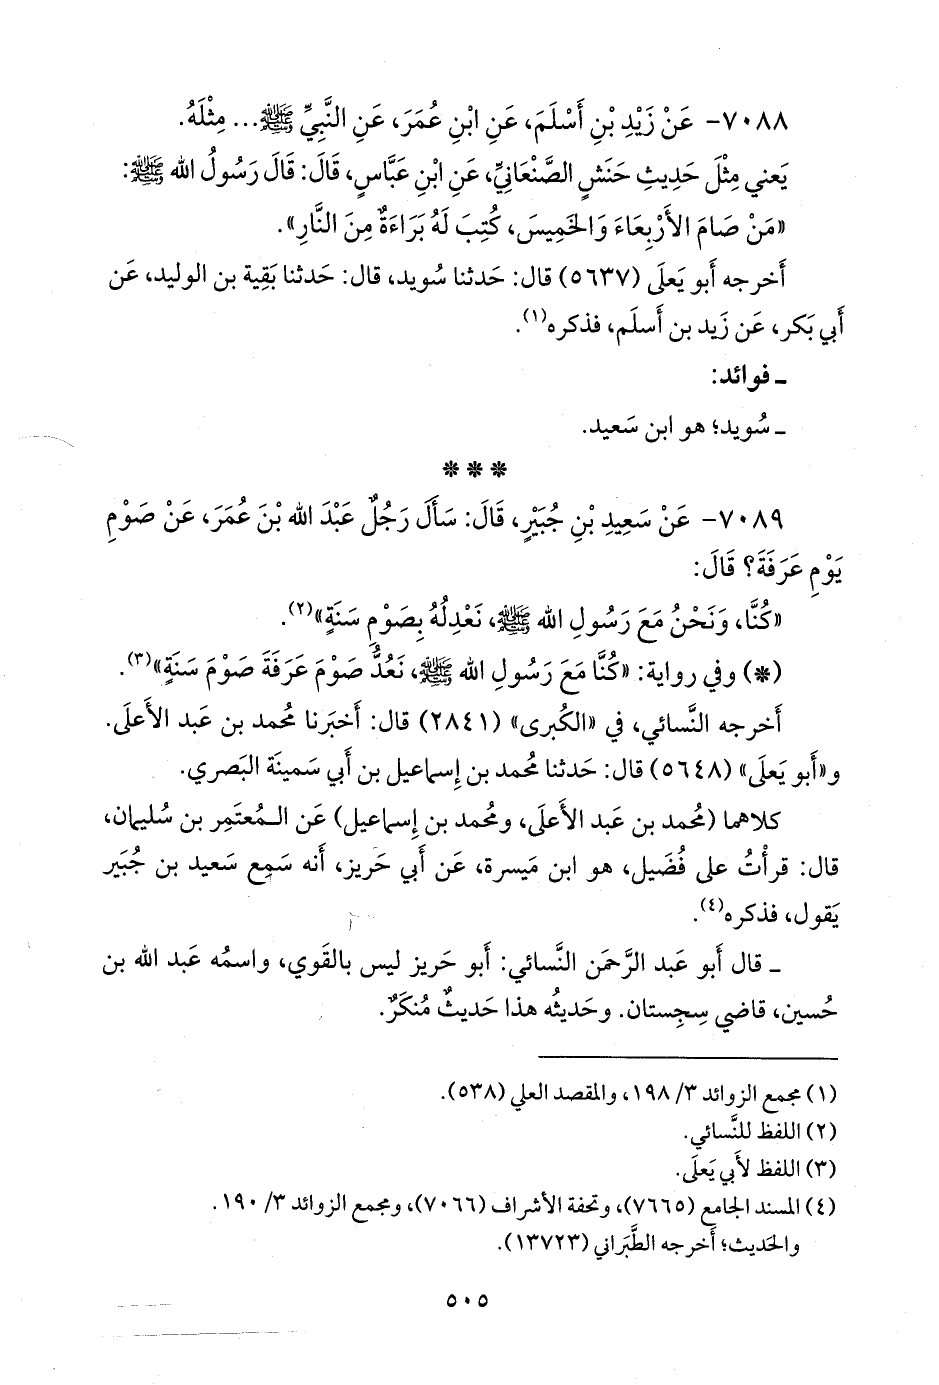 ٧٠٨٨- عَنْ زَيْدِ بْنِ أَسْلَمَ، عَنِ ابْنِ عُمَرَ، عَنِ النَّبِيِّ ﷺ... مِثْلَهُ.
يَعني مِثْلَ حَدِيثِ حَنَشٍ الصَّنْعَانِيِّ، عَنِ ابْنِ عَبَّاسٍ، قَالَ: قَالَ رَسُولُ الله ﷺ:
«مَنْ صَامَ الأَرْبِعَاءَ وَالخَمِيسَ، كُتِبَ لَهُ بَرَاءَةٌ مِنَ النَّارِ».
أَخرجه أَبو يَعلَى (٥٦٣٧) قال: حَدثنا سُويد، قال: حَدثنا بَقِية بن الوليد، عَن
أَبي بَكر، عَن زَيد بن أَسلَم، فذكره(١).
ـ فوائد:
ـ سُويد؛ هو ابن سَعيد.
* * *
٧٠٨٩- عَنْ سَعِيدِ بْنِ جُبَيْرٍ، قَالَ: سَأَلَ رَجُلٌ عَبْدَ الله بْنَ عُمَرَ، عَنْ صَوْمِ
يَوْمِ عَرَفَةَ؟ قَالَ:
«كُنَّا، وَنَحْنُ مَعَ رَسُولِ الله ﷺ، نَعْدِلُهُ بِصَوْمِ سَنَةٍ»(٢).
(*) وفي رواية: «كُنَّا مَعَ رَسُولِ الله ﷺ، نَعُدُّ صَوْمَ عَرَفَةَ صَوْمَ سَنَةٍ»(٣).
أَخرجه النَّسائي، في «الكُبرى» (٢٨٤١) قال: أَخبَرنا مُحمد بن عَبد الأَعلَى.
و«أَبو يَعلَى» (٥٦٤٨) قال: حَدثنا مُحمد بن إِسماعيل بن أَبي سَمينَة البَصري.
كلاهما (مُحمد بن عَبد الأَعلَى، ومُحمد بن إِسماعيل) عَن المُعتَمِر بن سُليمان،
قال: قرأْتُ على فُضَيل، هو ابن مَيسرة، عَن أَبي حَريز، أَنه سَمِع سَعيد بن جُبَير
يَقول، فذكره(٤).
ـ قال أَبو عَبد الرَّحمَن النَّسائي: أَبو حَريز ليس بالقَوي، واسمُه عَبد الله بن
حُسين، قاضي سِجِستان. وحَديثُه هذا حَديثٌ مُنكَرٌ.
(١) مجمع الزوائد ٣/ ١٩٨، والمقصد العلي (٥٣٨).
(٢) اللفظ للنَّسائي.
(٣) اللفظ لأَبي يَعلَى.
(٤) المسند الجامع (٧٦٦٥)، وتحفة الأشراف (٧٠٦٦)، ومجمع الزوائد ٣/ ١٩٠.
والحَديث؛ أَخرجه الطَّبَراني (١٣٧٢٣).
٥٠٥